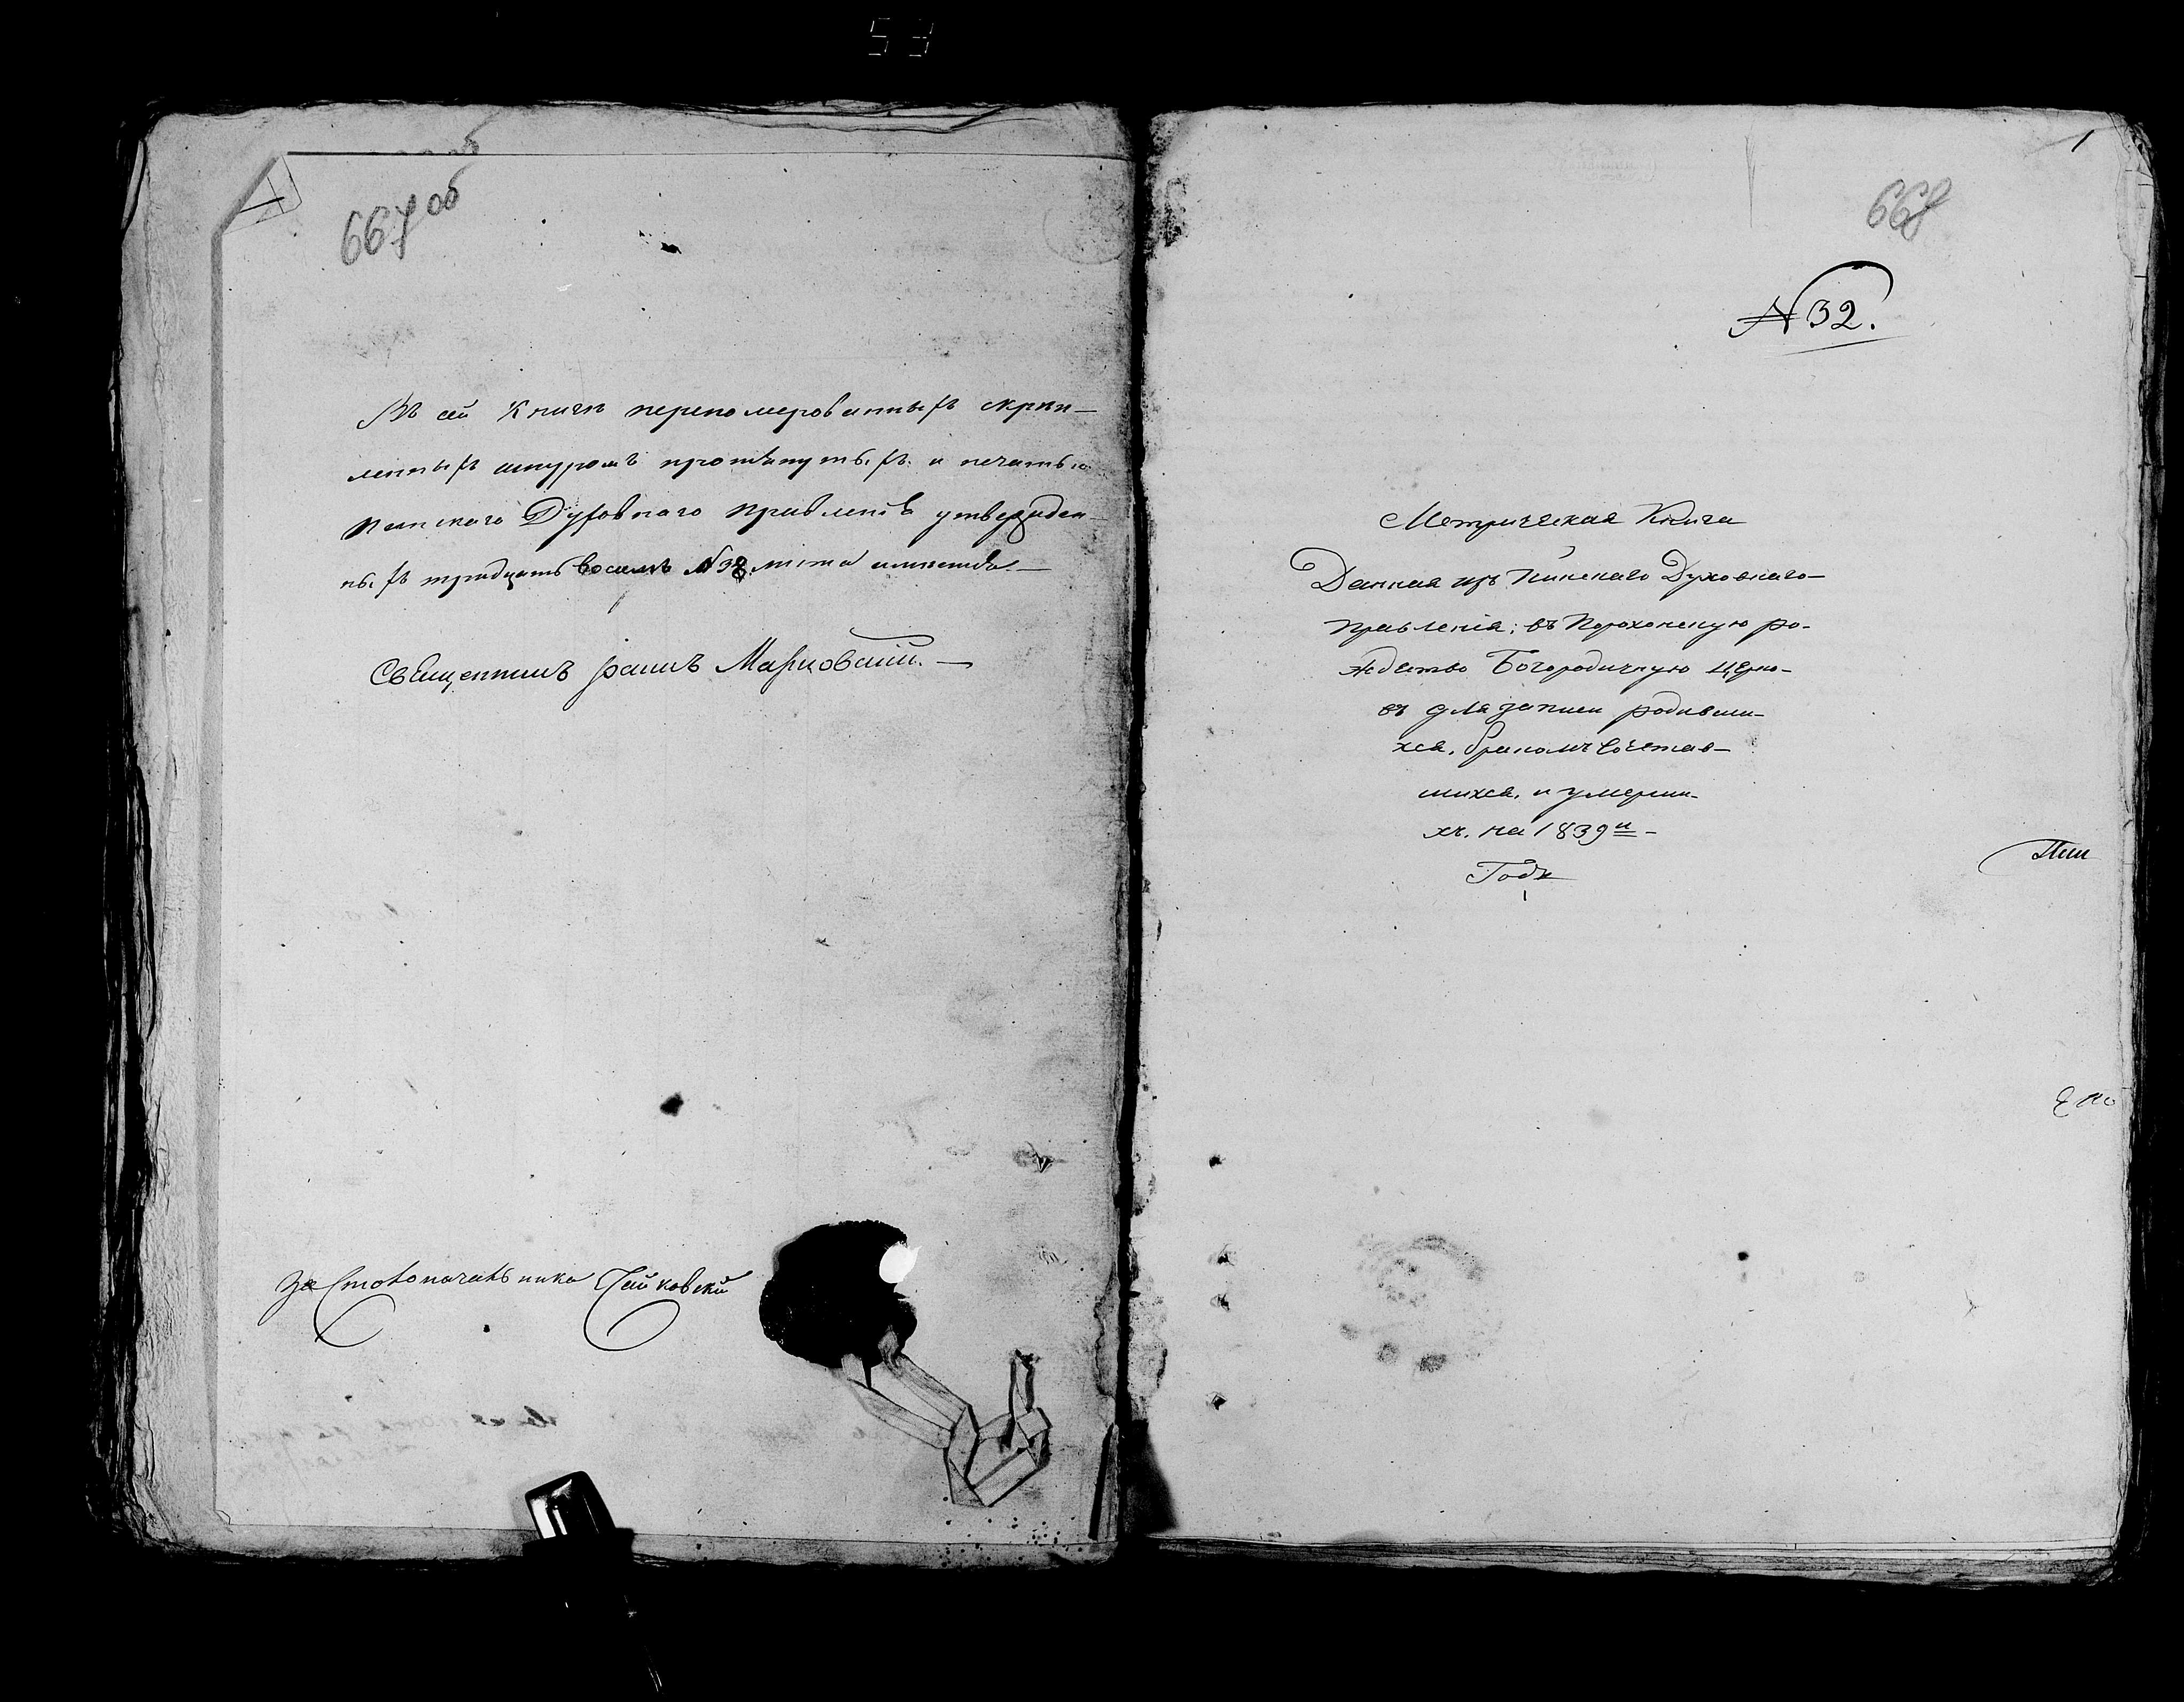 53
667 об
Въ сей Книгѣ перепомерованныхъ скрѣп-
ленныхъ шнуромъ протянутыхъ и печатью
Пинскаго Духовнаго Правленія утвержден-
ныхъ тридцать восемь №38 листа имѣется.—
Священникъ Марковскій.—
За Столоначальника Чайковскій
1
668
№ 32.
Метрическая Книга
Данная изъ Пинскаго Духовнаго-
Правленія; въ Порохонскую ро-
ждество Богородичную церко-
въ для записи родивши-
хся, бракомъ сочетав-
шихся, и умерши-
хъ. на 1839й -
Годъ
Пин